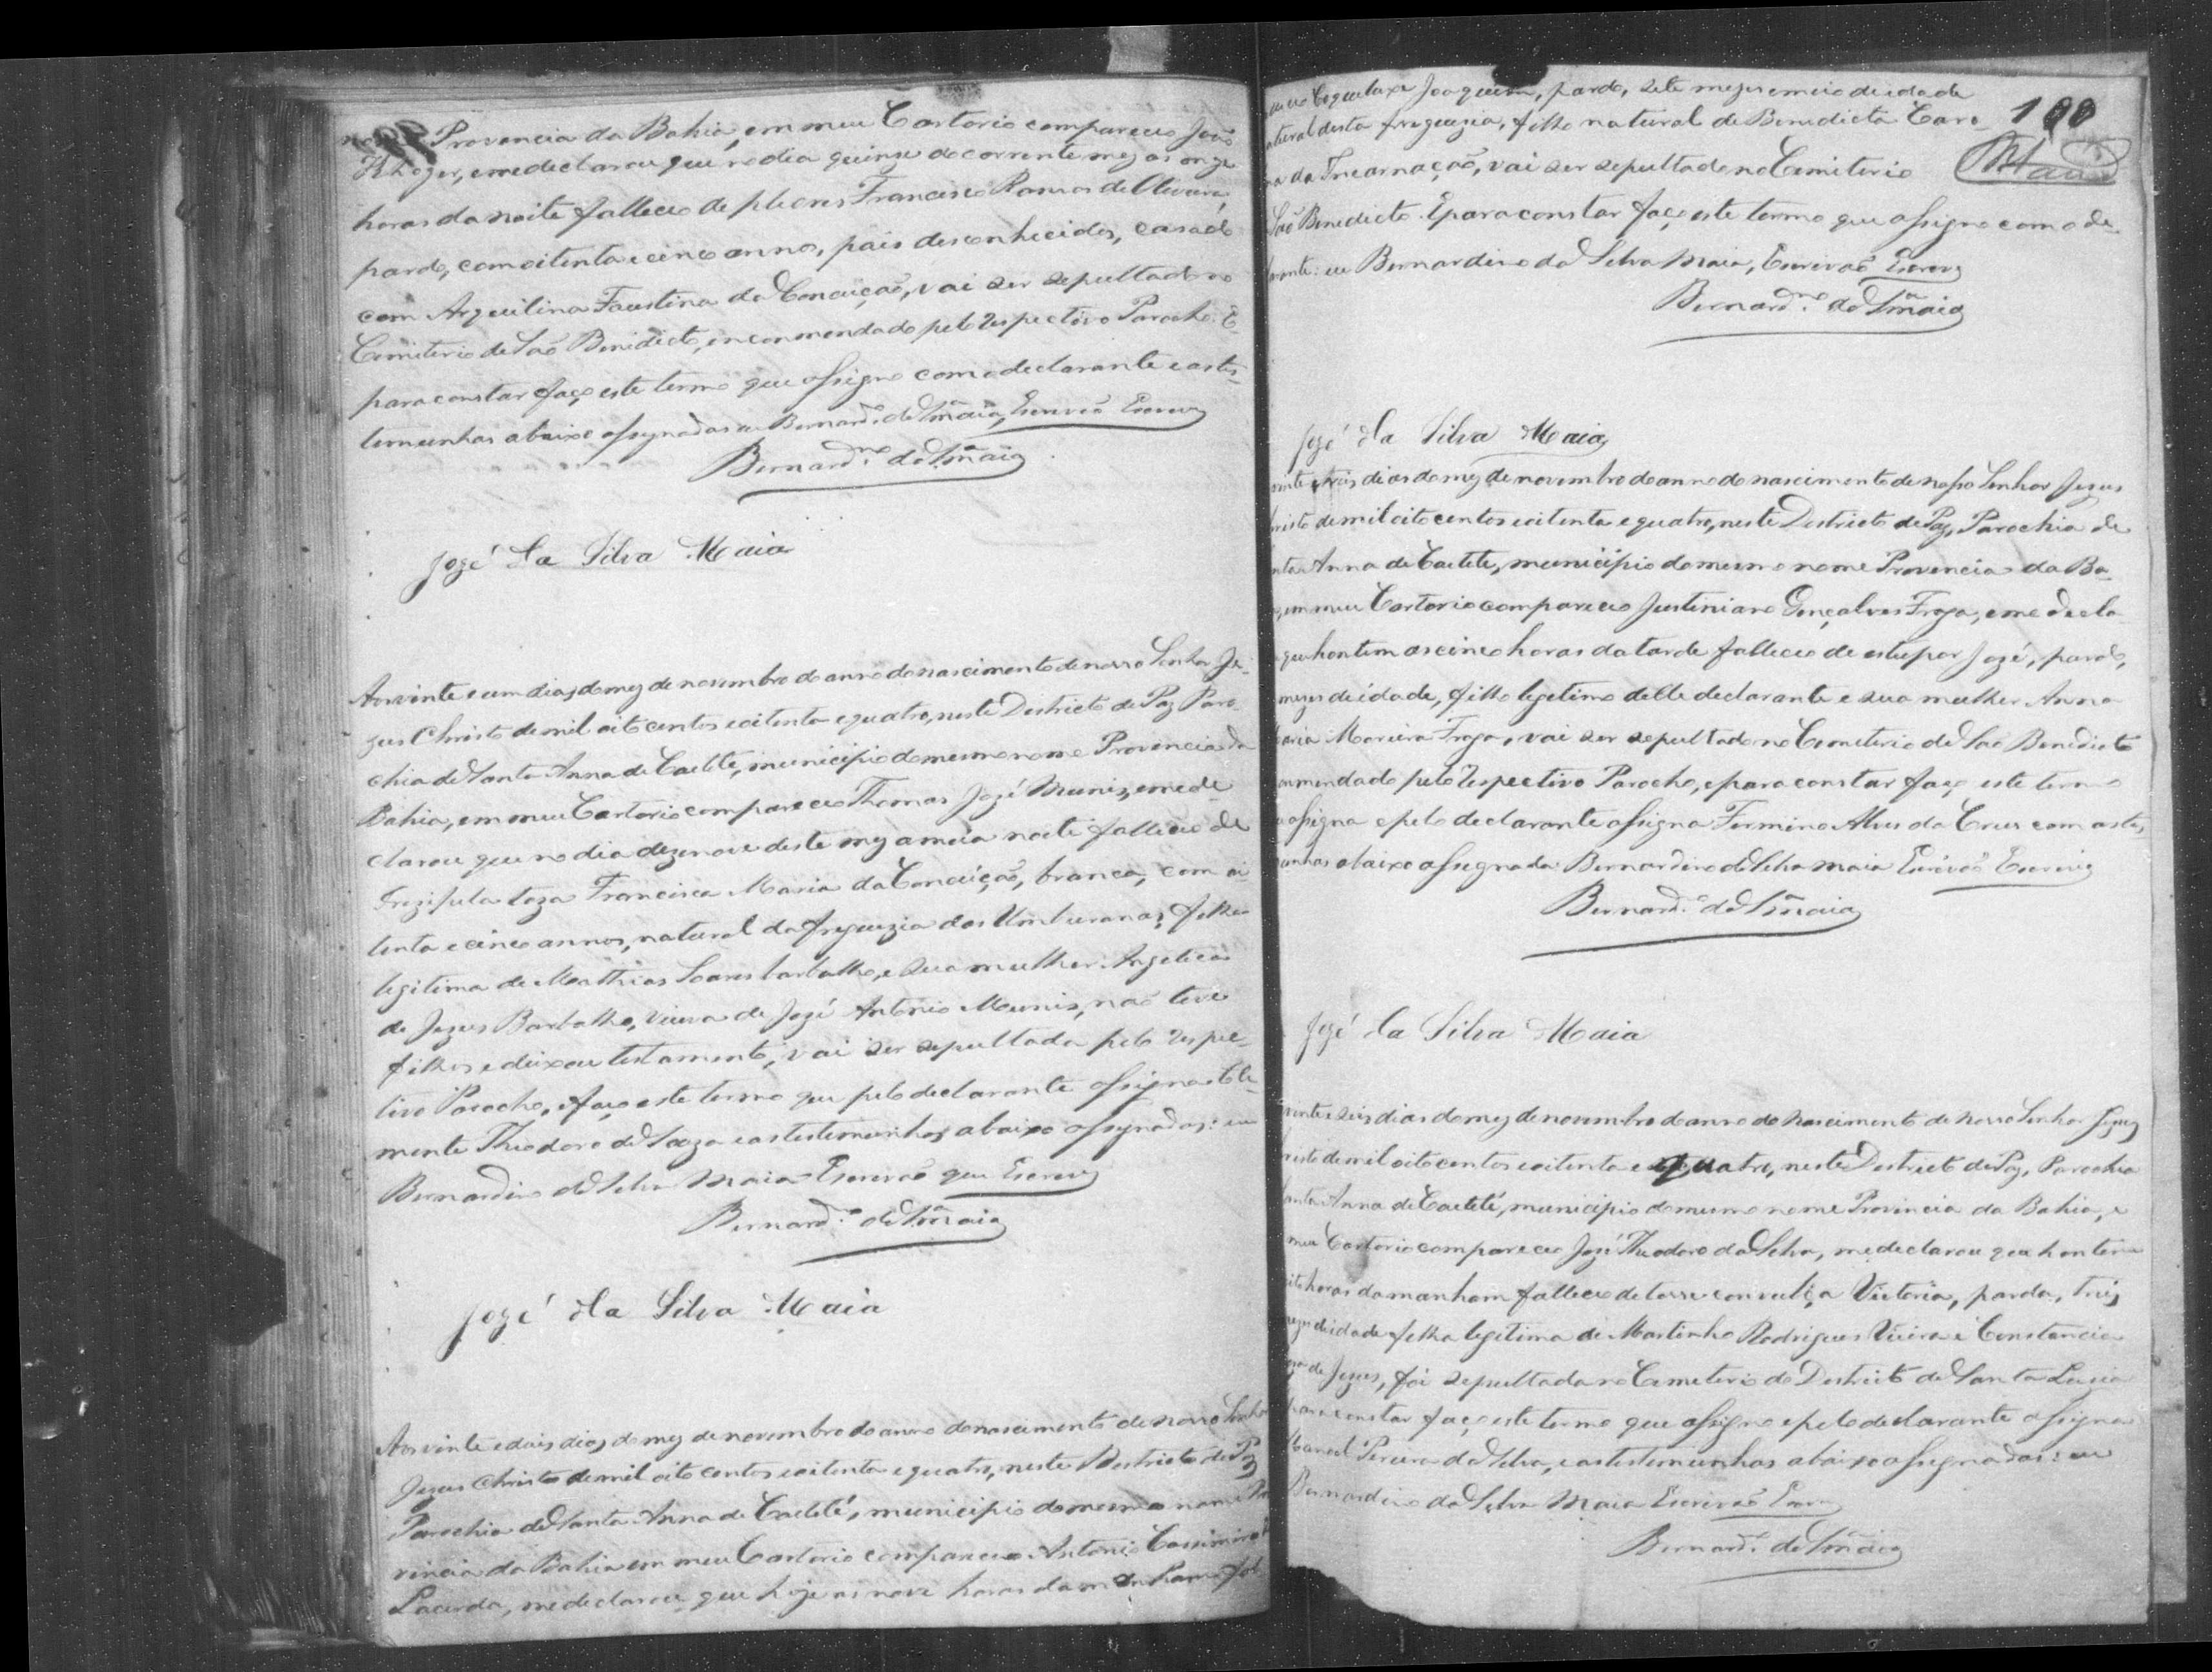 Provencia da Bahia, em meu Cartorio compareceo João
e me declarou que no dia quinze do corrente mez as onze
horas da noite falleceo de Francisco Ramos de Oliveira,
pardo, com oitenta e cinco annos, pais desconhecidos, casado
com Arquilina Faustina da Conceição, vai ser sepultado no
Cemiterio de São Benidicto, encommendado pelo respectivo Parocho. E
para constar faço este termo que assigno com o declarante e as tes-
temunhas abaixo assignadas eu Bernard.º da S.ª Maia, Escrivão Escrevy
Bernard.no da S.ª Maia
Jozé da Silva Maia
Aos vinte e um dias do mez de novembro do anno do nascimento de nosso Senhor Je-
zus Christo de mil oito centos e oitenta e quatro, neste Destricto de Paz Paro-
chia de Santa Anna de Caeteté, municipio do mesmo nome Provencia da
Bahia, em meu Cartorio compareceo Thomas José Muniz, e me de-
clarou que no dia dezenove deste mez a meia noite falleceo de
Francisca Maria da Conceição, branca, com oi-
tenta e cinco annos, natural da freguezia das Umburanas, filha
legitima de Mathias Soares barbalho, e sua mulher Angelica
de Jezus Barbalho, viuva de Jozé Antonio Muniz, não teve
filhos e deixou testamento, vai ser sepultada pelo respec-
tivo Parocho, e faço este termo que pelo declarante assigna
mente Theodoro de Souza e as testemunhas abaixo assignadas: eu
Bernardino da Silva Maia Escrivão que Escrevy
Bernard.º da S.ª Maia
Jozé da Silva Maia
Aos vinte e dois dias do mez de novembro do anno do nascimento de nosso Senhor
Jezus Christo de mil oito centos e oitenta e quatro, neste Destricto de Paz
Parochia de Santa Anna de Caeteté, municipio do mesmo nome Pro
vincia da Bahia em meu Cartorio compareceo Antonio Cassimiro
Lacerda, me declarou que hoje as nove horas da manham fal
Coqueluxe Joaquim, pardo, sete mezes e meio de idade
natural desta freguezia, filho natural de Benedicta Caro-
na da Incarnação, vai ser sepultado no Cemiterio
São Benedicto. E para constar faço este termo que assigno com o de-
larante: eu Bernardino da Silva Maia, Escrivão Escrevy
Bernard.no da S.ª Maia
100
Maia
Jozé da Silva Maia
vinte e tres dias do mez de novembro do anno do nascimento de nosso Senhor Jezus
hristo de mil oito centos e oitenta e quatro, neste Destricto de Paz, Parochia de
nta Anna de Caeteté, municipio do mesmo nome Provencia da Ba-
em meu Cartorio compareceo Justiniano Gonçalves Fraga, e me decla-
que hontem as cinco horas da tarde falleceo de estupor Jozé, pardo,
mezes de idade, filho legitimo delle declarante e sua mulher Anna
aria Moreira Fraga, vai ser sepultado no Cemiterio de São Benedicto
ommendado pelo respectivo Parocho, e para constar faço este termo
assigna e pelo declarante assigna Firmino Alves da Cruz com as tes
unhas abaixo assignada: Bernardino da Silva Maia Escrivão Escrevy
Bernard.º da S.ª Maia
Jozé da Silva Maia
vinte e seis dias do mez de novembro do anno do nascimento de nosso Senhor Jezus
risto de mil oito centos e oitenta e quatro, neste Destricto de Paz, Parochia
Santa Anna de Caeteté, municipio do mesmo nome Provincia da Bahia, e
meu Cartorio compareceo José Theodoro da Silva, me declarou que hontem
oito horas da manham falleceo de tosse convulça Victoria, parda, tres
mezes de idade filha legitima de Martinho Rodrigues Vieira e Constancia
de Jezus, foi sepultada no Cemeterio do Destricto de Santa Luzia
para constar faço este termo que assigno e pelo declarante assigna
Manoel Pereira da Silva, e as testemunhas abaixo assignadas: eu
Bernardino da Silva Maia Escrivão Escrevy
Bernard.º da S.ª Maia